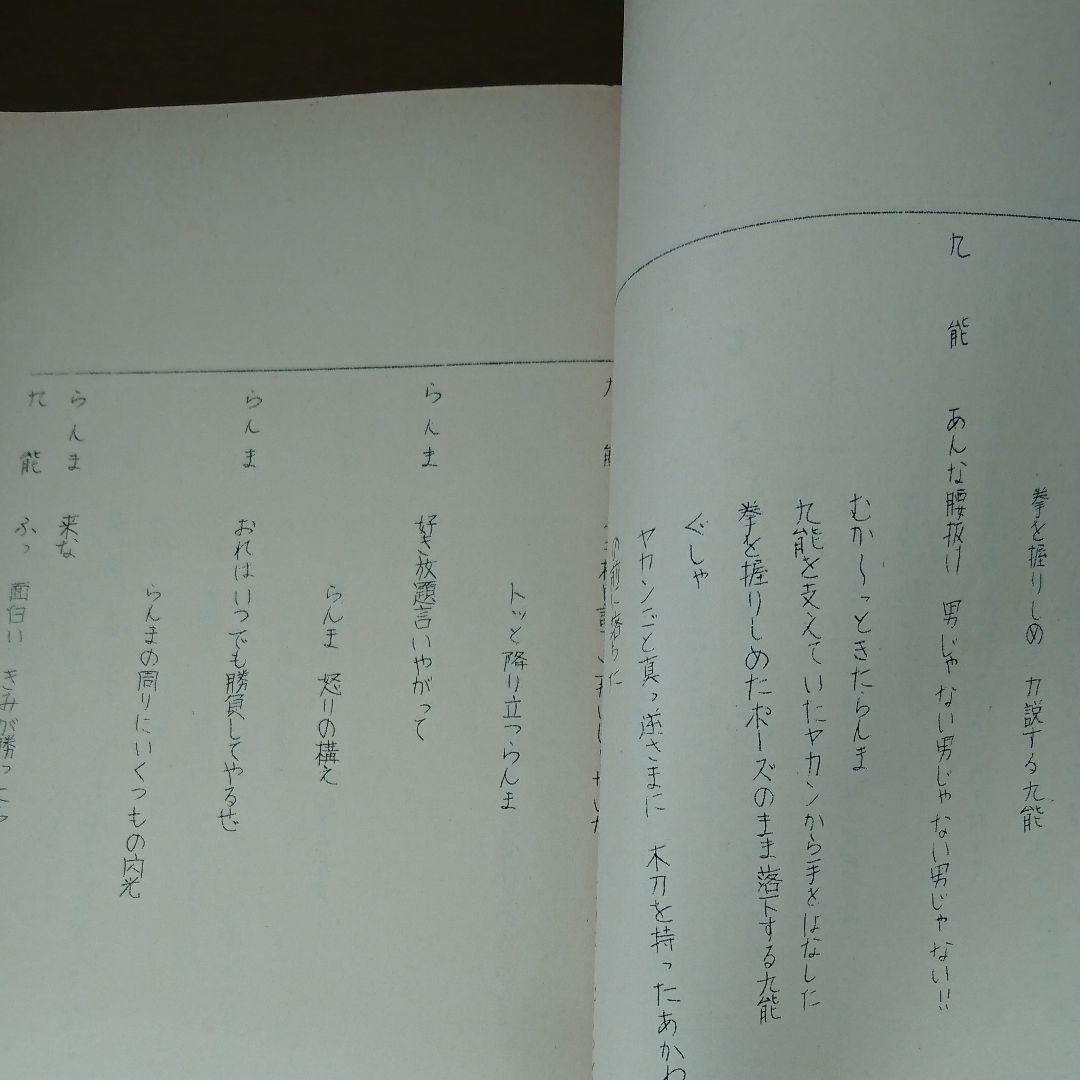 拳を握りしめ 力説する九能
九能 あんな腰抜け 男じゃない男じゃない男じゃない!!
むか〜っときたらんま
九能を支えていたヤカンから手をはなした
拳を握りしめたポーズのまま落下する九能
ぐしゃ
ヤカンごと真っ逆さまに 木刀を持ったあかね
の前に落ちた
トッと降り立つらんま
らんま 好き放題言いやがって
らんま 怒りの構え
らんま おれはいつでも勝負してやるぜ
らんまの周りにいくつもの閃光
らんま 来な
九能 ふっ 面白い きみが勝ったら